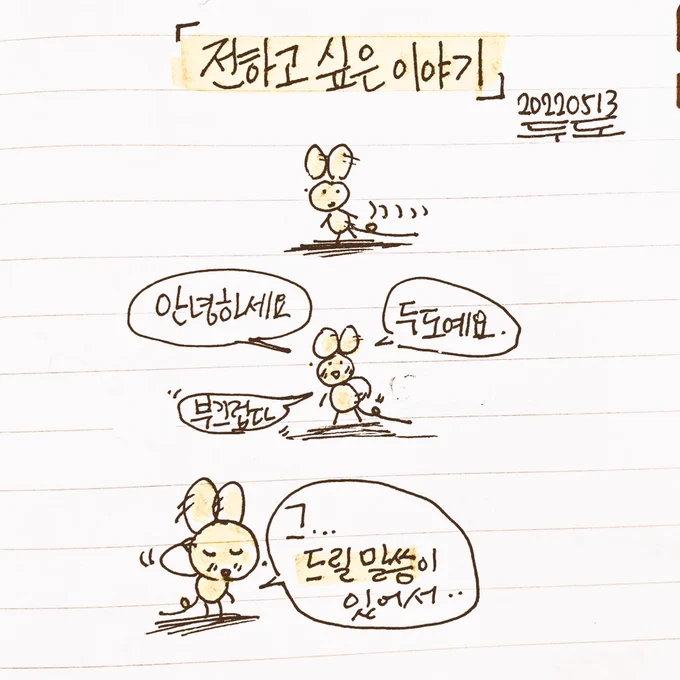 「전하고 싶은 이야기」
20220513
두도
안녕하세요
두도예요.
부끄럽다
그...
드릴 말씀이
있어서..